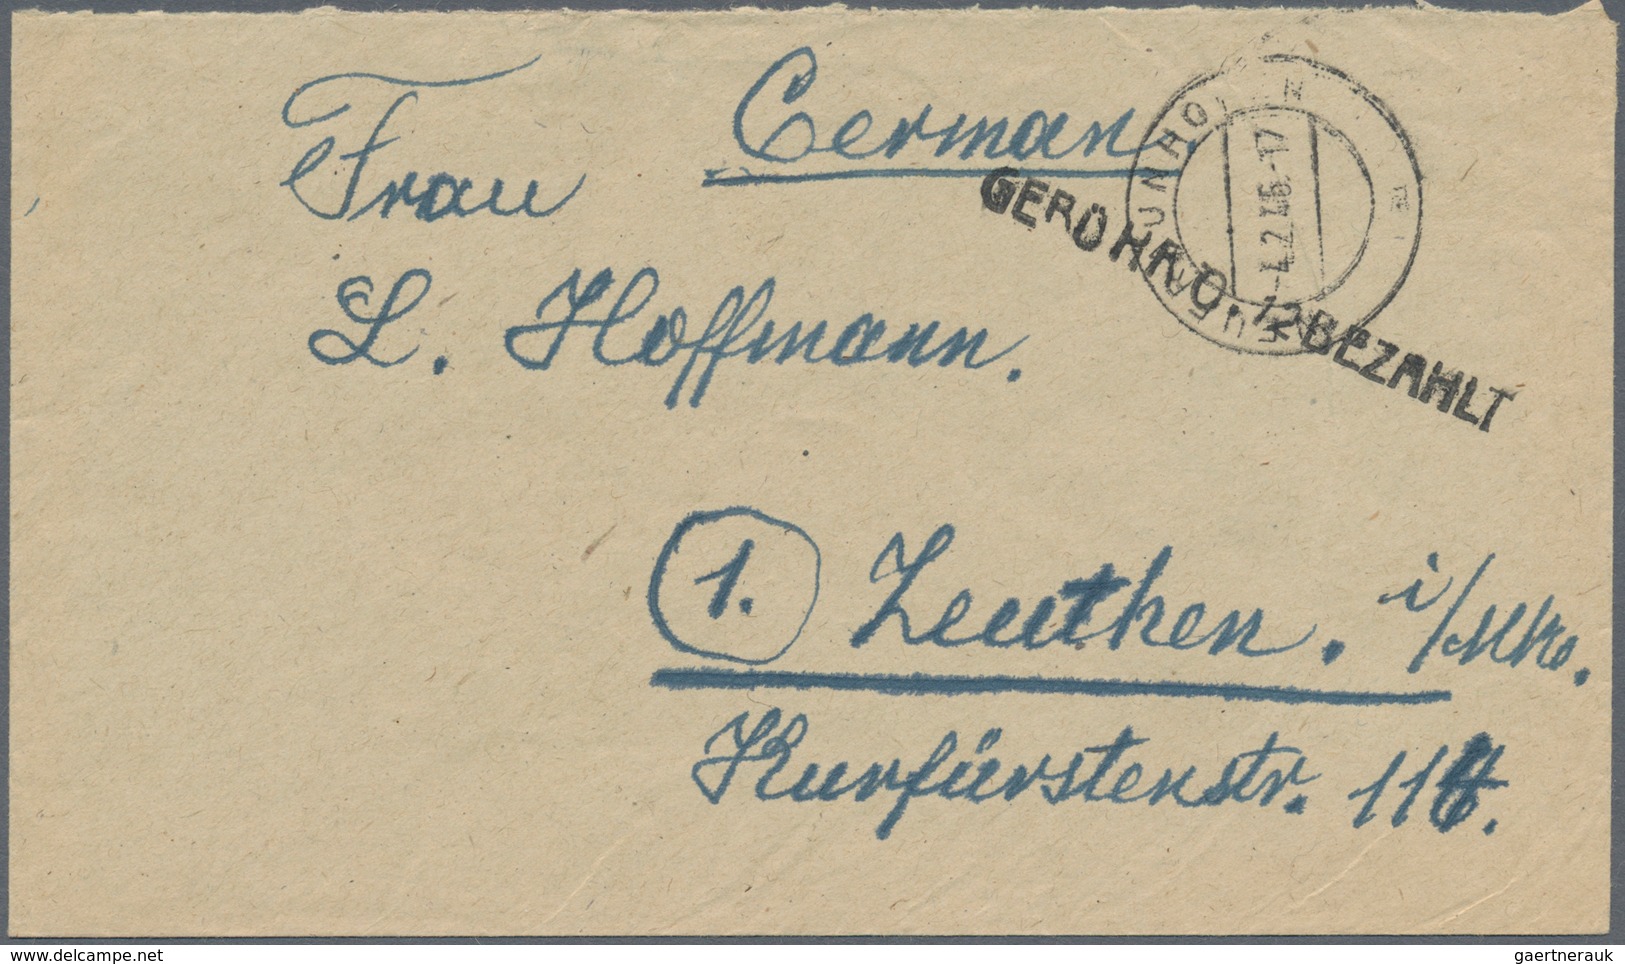 Frau
German
L. Hoffmann.
GEBÜHR 0 12 BEZAHLT
4.2.46.-17
1. Zeuthen. i/Mk.
Kurfürstenstr. 116.
Delcampe.net
gaertnerauk